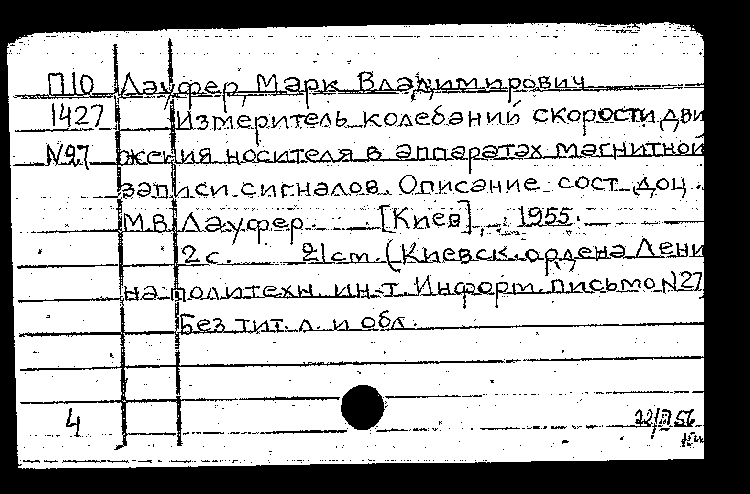 П10 Лауфер, Марк Владимирович
1427 Измеритель колебаний скорости дви
№27 жения носителя в аппаратах магнитной
записи сигналов. Описание сост. доц.
М.В. Лауфер. [Киев], 1955.
2 с. 21 cm. (Киевск. ордена Лени
на политехн. ин-т. Информ. письмо №27)
Без тит. л. и обл.
4 22/III 56